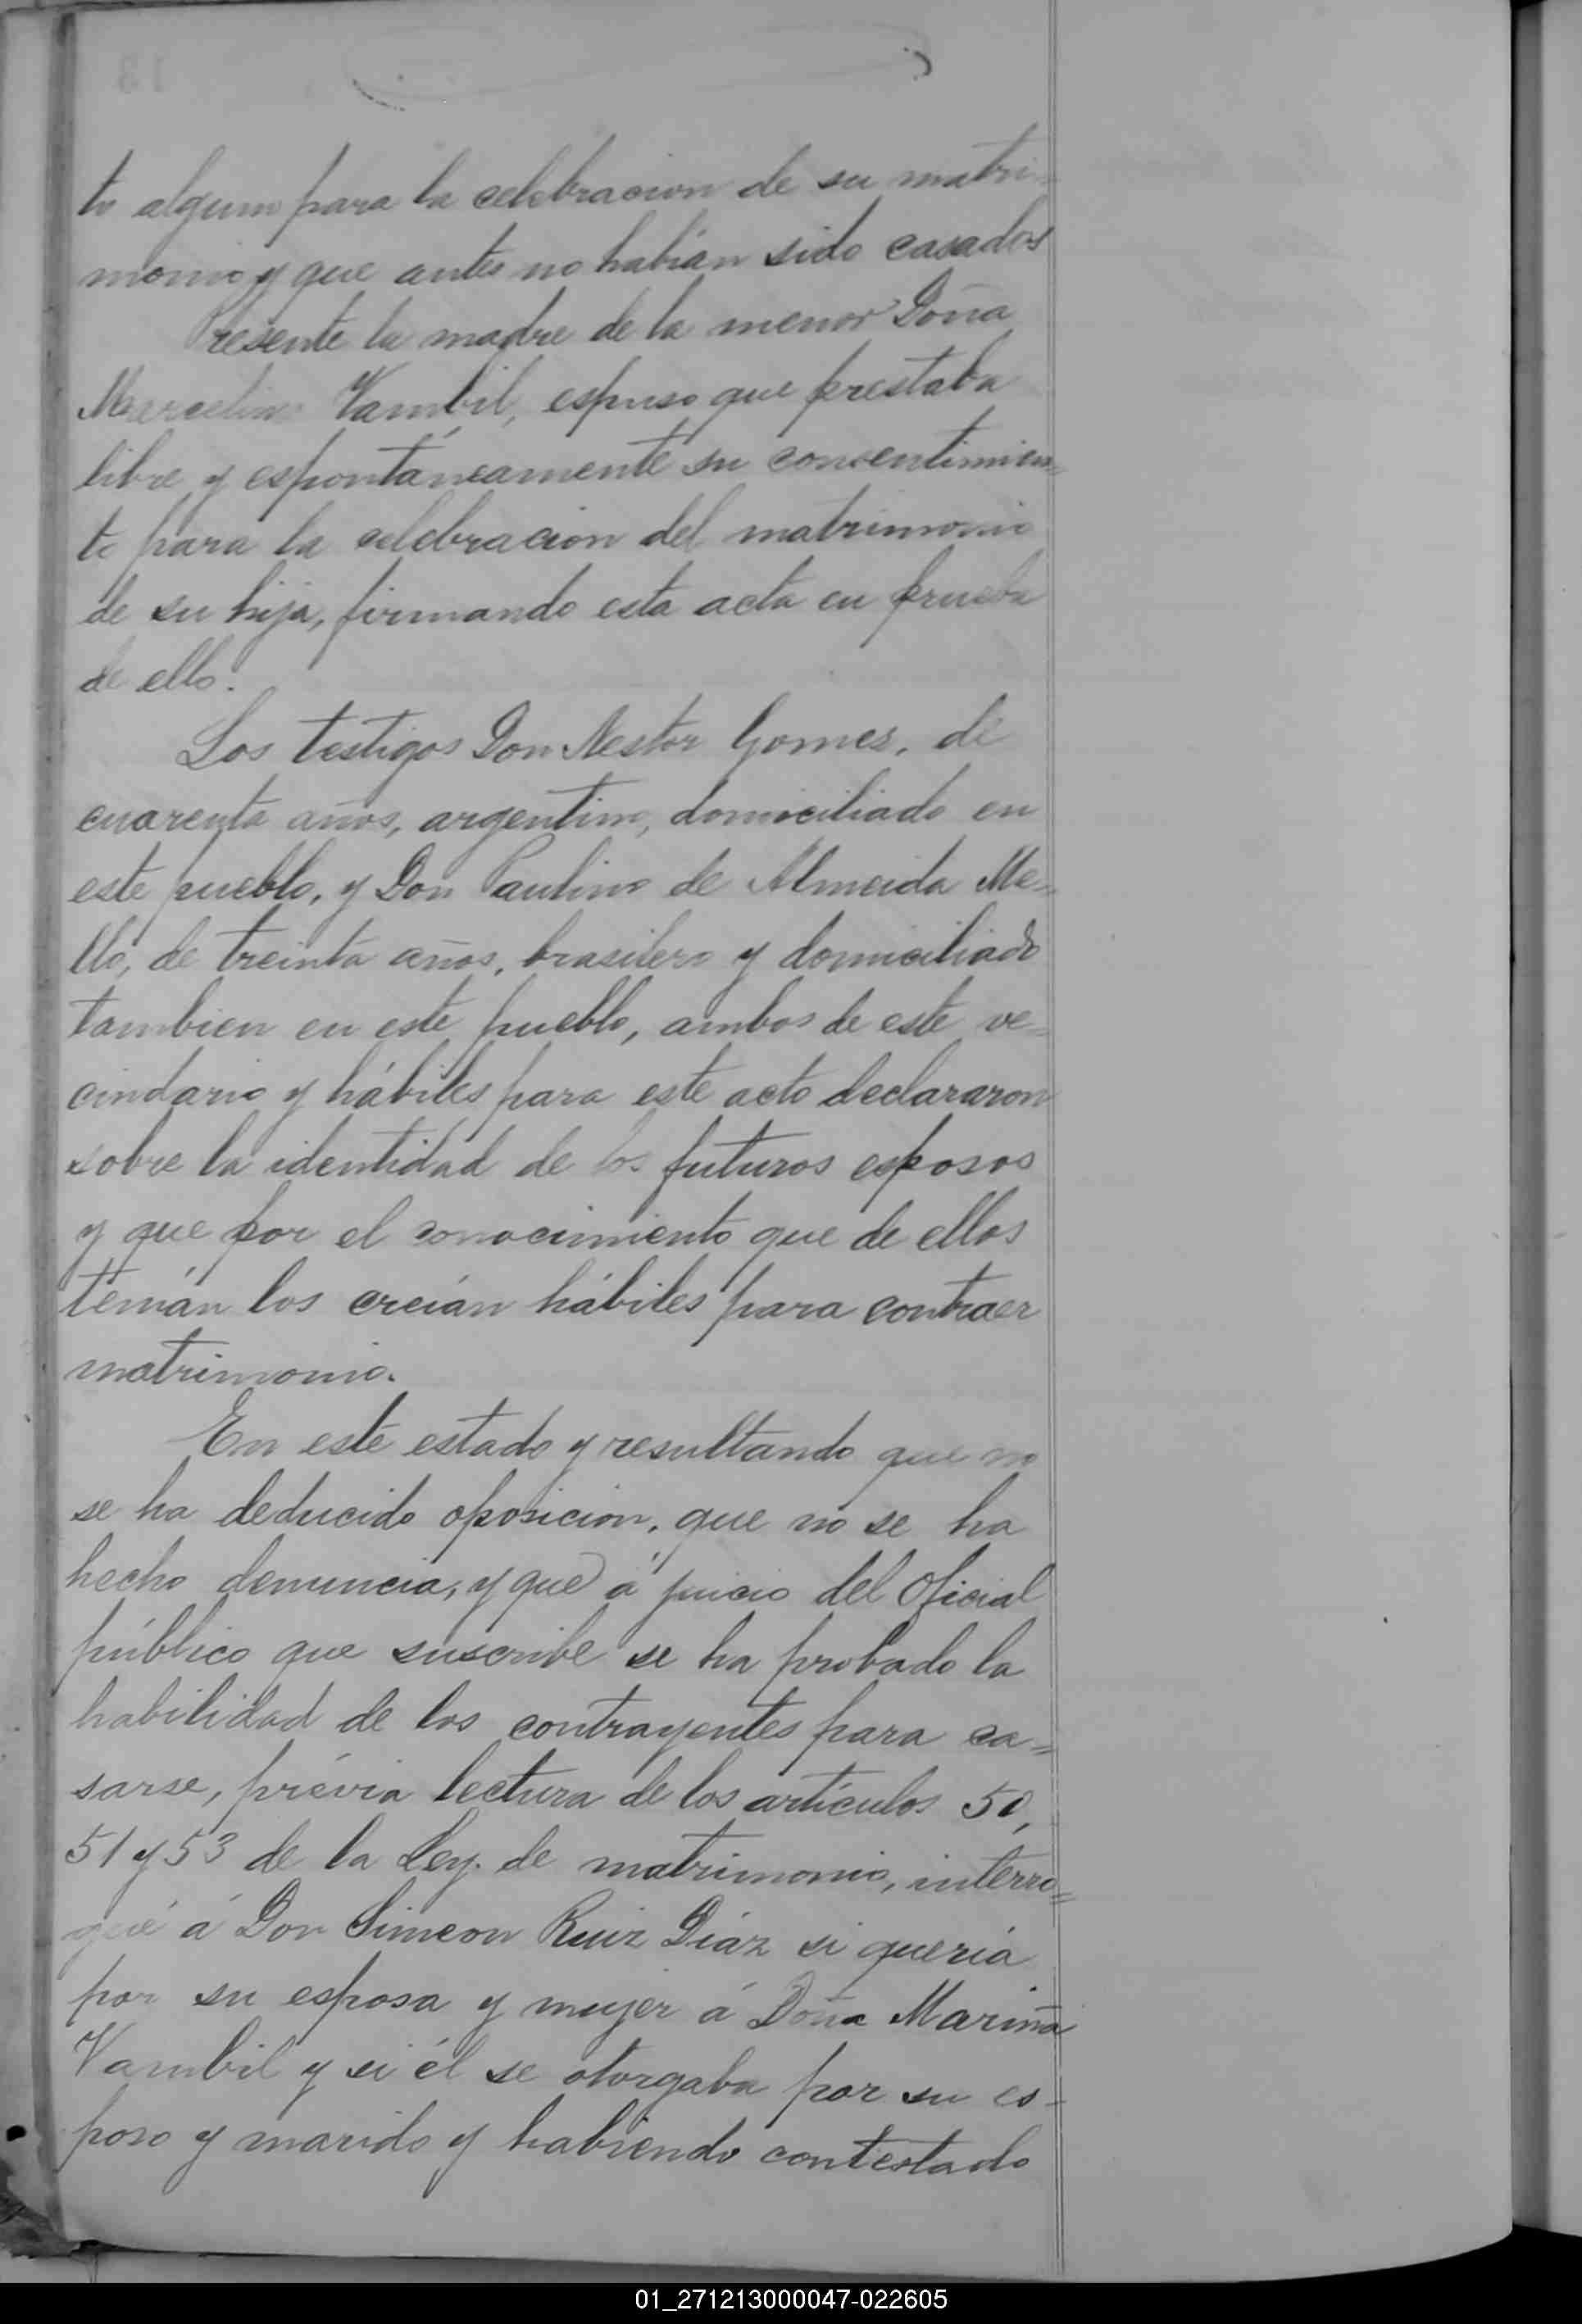 to alguno para la celebracion de su matri-
monio y que antes no habián sido casados
Presente la madre de la menor Doña
Marcelina Vambil, espuso que prestaba
libre y espontáneamente su consentimien=
to para la celebracion del matrimonio
de su hija, firmando esta acta en prueba
de ello.
Los testigos Don Nestor Gomes, de
cuarenta años, argentino, domiciliado en
este pueblo, y Don Paulino de Almeida Me=
llo, de treinta años, brasilero y domiciliado
tambien en este pueblo, ambos de este ve=
cindario y hábiles para este acto declararon
sobre la identidad de los futuros esposos
y que por el conocimiento que de ellos
tenián los creián hábiles para contraer
matrimonio.
En este estado y resultando que no
se ha deducido oposicion, que no se ha
hecho denuncia, y que á juicio del Oficial
público que suscribe se ha probado la
habilidad de los contrayentes para ca=
sarse, prévia lectura de los artículos 50,
51 y 53 de la Ley de matrimonio, interro=
gué á Don Simeon Ruiz Diáz si queriá
por su esposa y mujer á Doña Mariña
Vambil y si él se otorgaba por su es-
poso y marido y habiendo contestado
01_271213000047-022605